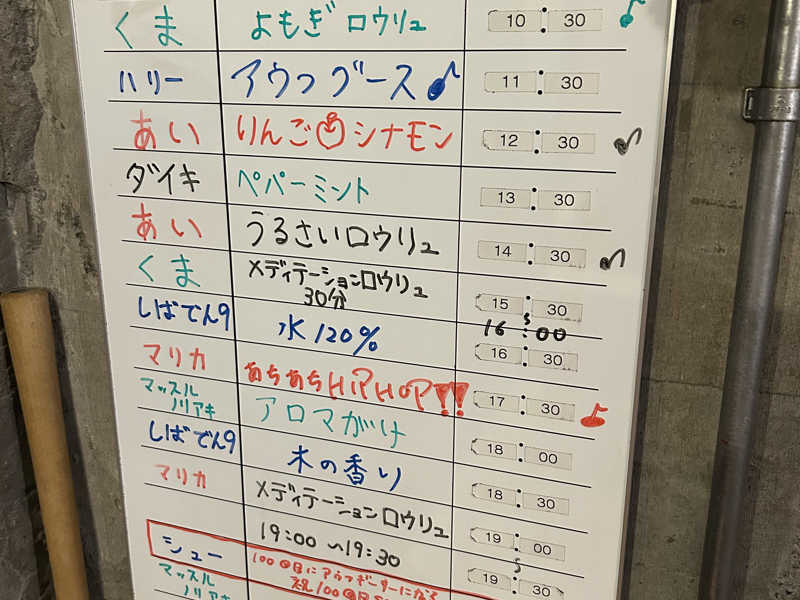 くま よもぎロウリュ 10:30
ハリー アウフグース 11:30
あい りんごシナモン 12:30
ダイキ ペパーミント 13:30
あい うるさいロウリュ 14:30
くま メディテーションロウリュ 15:30
30分 16:00
しばでん9 水120% 16:30
マリカ あちあちHIPHOP!! 17:30
マッスル
ノリアキ アロマがけ 18:00
しばでん9 木の香り 18:30
マリカ メディテーションロウリュ 19:00
19:00〜19:30 19:30
シュー 100回目にアウフギーサーになる
マッスル 祝100回目
ノリアキ